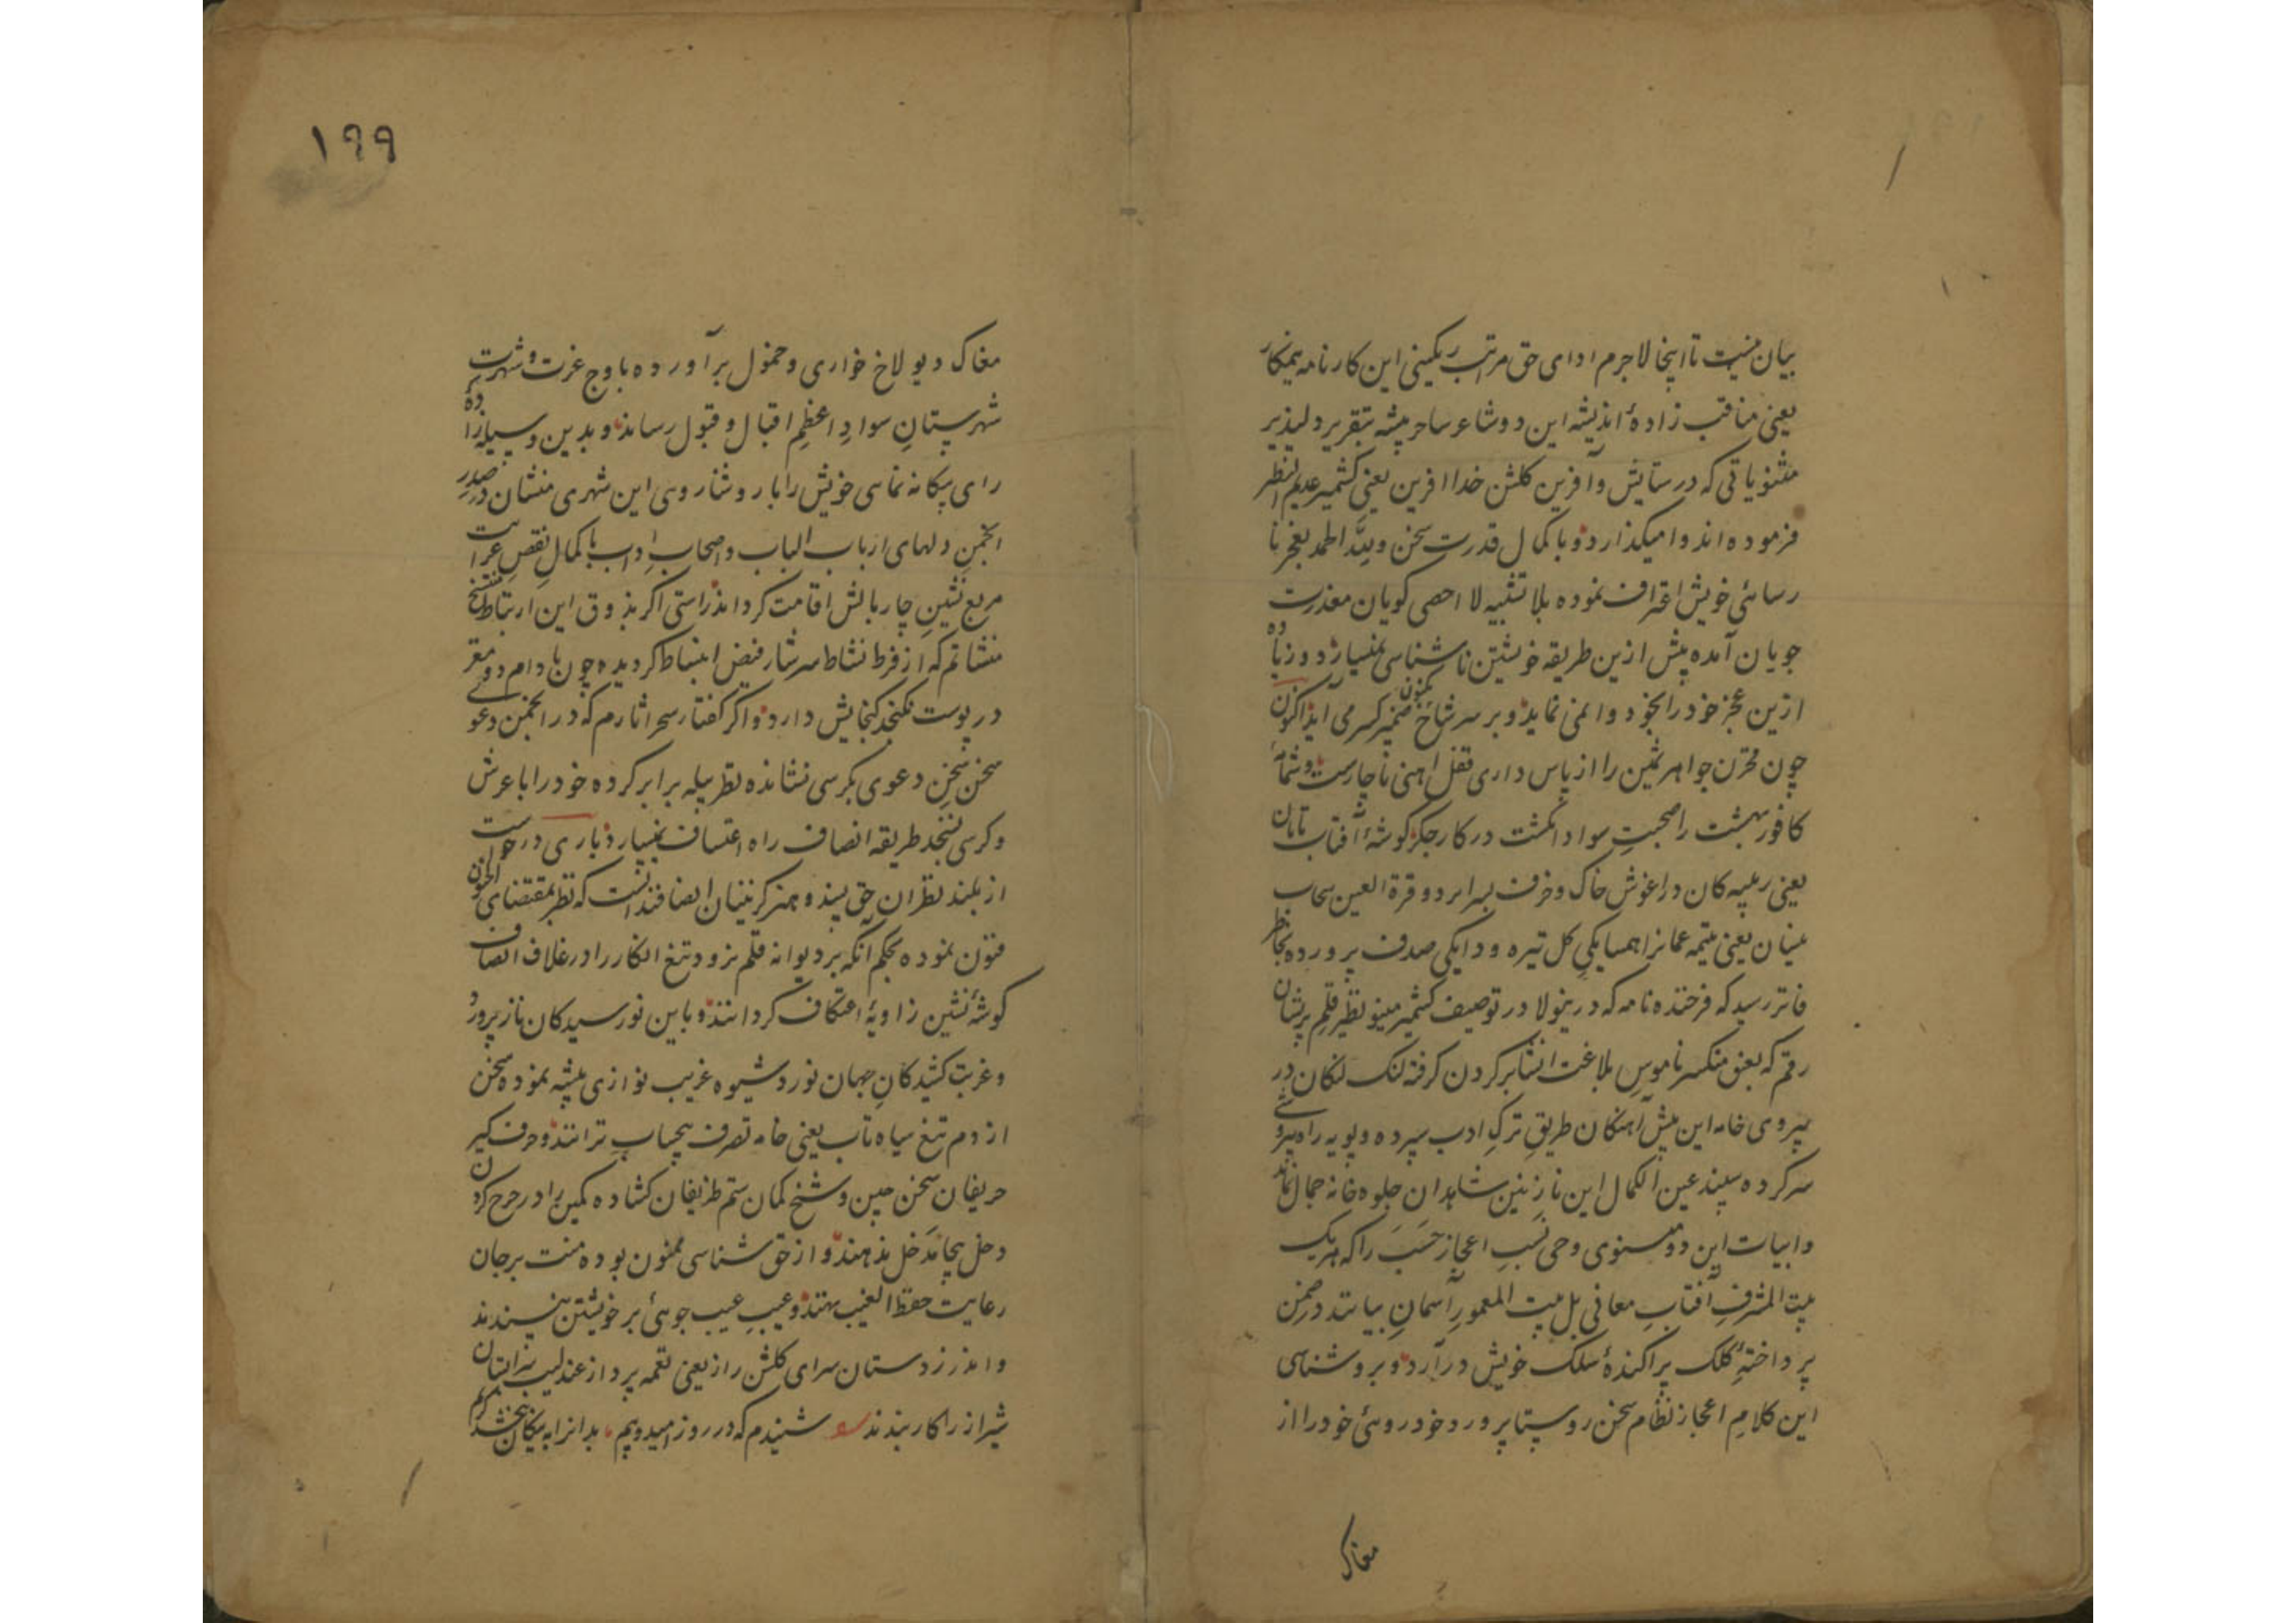 بیان نیست تا اینجا لاجرم ادای حق مراتب رنگینی این کارنامه
یعنی مناقب زادهٔ اندیشه این دو شاعر ساحر پیشه بتقریر دلپذیر
مثنویاتی که در ستایش و آفرین گلشن خدا آفرین یعنی کشمیر عدیم النظیر
فرموده اند وامیگذارد و با کمال قدرت سخن بعجز نا
رسائی خویش اعتراف نموده بلا تشبیه لا احصی گویان معذرت
جویان آمده پیش ازین طریقه خویشتن ناشناسی نمیسپارد و زیاده
ازین عجز خود را بخود وا نمی نماید و بر سر شاخ ضمیر کسر می آید اکنون
چون مخزن جواهر ثمین را از پاس داری قفل آهنی ناچارست و شمامه
کافور بهشت را صحبت سواد انگشت در کار جگر گوشهٔ آفتاب تابان
یعنی ربیبه کان در آغوش خاک و خزف بسر برد و قرة العین سحاب
نیسان یعنی یتیمه عمانرا همسایگی گل تیره و دایگی صدف پرورده بخاطر
فاتر رسید که فرخنده نامه که درینولا در توصیف کشمیر مینو نظیر قلم پریشان
رقم که بعنق منکسر ناموس بلاغت انشا بر گردن گرفته لنگ لنگان در
پیروی خامه این پیش آهنگان طریق ترک ادب سپرده و پویه راه پیروی
سر کرده سپند عین الکمال این نازنین شاهدان جلوه خانه جمال نماید
و ابیات این دو مثنوی وحی نسب اعجاز حسب را که هر یک
بیت الشرف آفتاب معانی بل بیت المعمور آسمان بیانند در ضمن
پرداختهٔ کلک پراکندهٔ سلک خویش در آرد و بروشناسی
این کلام اعجاز نظام سخن روستا پرورد خود روئی خود را از
مغاک
۱۹۹
مغاک دیولاخ خواری و خمول برآورده باوج عزت و شهرت
شهرستان سواد اعظم اقبال و قبول رساند و بدین وسیله زادهٔ
رای بیگانه نمای خویش را با روشناروی این شهری منشان در صدر
انجمن دلهای ارباب الباب و اصحاب ادب با کمال نقص غرابت
مربع نشین چار بالش اقامت گرداند راستی اگر بذوق این ارتباط
منشاتم که از فرط نشاط سرشار فیض انبساط گردیده چون بادام دو مغز
در پوست نگنجد گنجایش دارد و اگر گفتار سحر آثارم که در انجمن دعوی
سخن سخن دعوی بکرسی نشانده نظر بپله برابر کرده خود را با عرش
و کرسی نسنجد طریقه انصاف راه اعتساف نمیسپارد باری درخواست
از بلند نظران حق پسند و هنر گزینان انصافمند آنست که نظر بمقتضای الجنون
فنون نموده بحکم آنکه بر دیوانه قلم نرود تیغ انکار را در غلاف انصاف
گوشه نشین زاویهٔ اعتکاف گردانند و باین نورسیدگان نازپرور
و غربت کشیدگان جهان نورد شیوه غریب نوازی پیشه نموده سخن
از دم تیغ سیاه تاب یعنی خامه تصرف بیحساب نتراشند و حرف گیر
حریفان سخن چین و شخ کمان ستم ظریفان گشاده کمین را در جرح کردن
دخل بیجا مدخل ندهند و از حق شناسی ممنون بوده منت بر جان
رعایت حفظ الغیب نهند و عیب عیب جوئی بر خویشتن نپسندند
و اندرز دستان سرای گلشن راز یعنی نغمه پرداز عندلیب
شیراز را کار بندند شنیدم که در روز امید و بیم بدانرا به نیکان ببخشد کریم